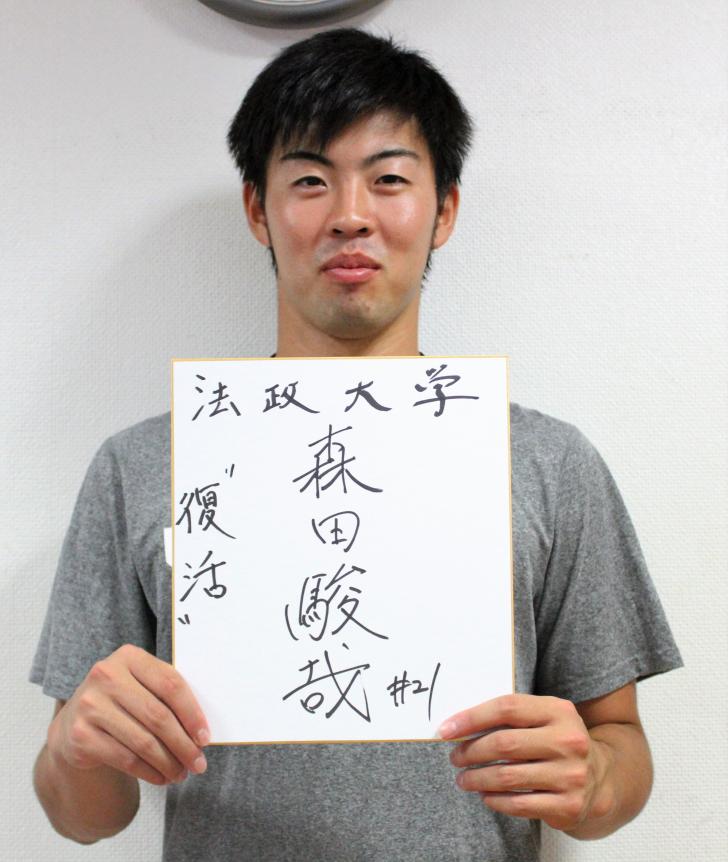 法政大学
森田駿哉 #21
"復活"